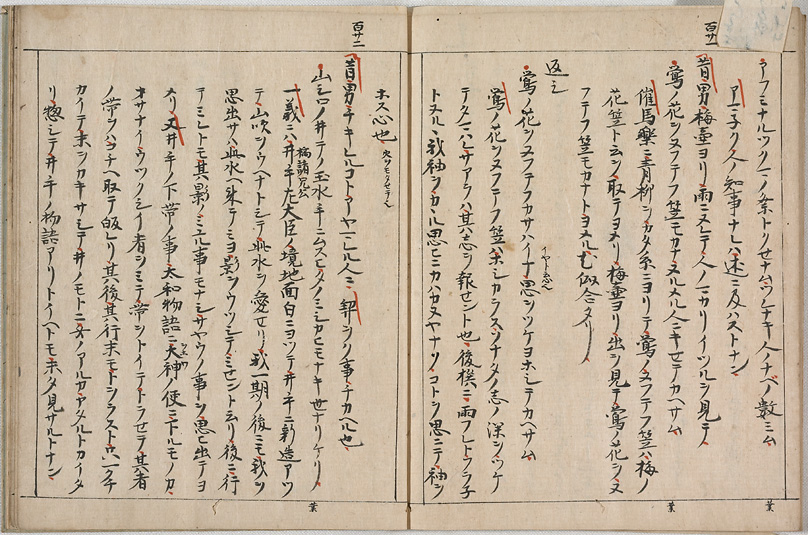 百廿一
アフミナルツクマノ祭トクセナムツレナキ人ノナベノ数ミム
アマ子ク人ノ知事ナレハ述ニ及ハストナン
昔男梅壷ヨリ雨ニヌレテ人ノマカリイツルヲ見テ
鶯ノ花ヲヌフテフ笠モカナヌルメル人ニキセテカヘサム
催馬樂ニ青柳ヲカタ糸ニヨリテ鶯ノヌフテフ笠ハ梅ノ
花笠ト云ヲ取テヨメリ梅壷ヨリ出ヲ見テ鶯ノ花ヲヌ
フテフ笠モカナトヨメル尤似合タリ
返シ
鶯ノ花ヲヌフテフカサハイナ思ヲツケヨホシテカヘサム
鶯ノ花ヲヌフテフ笠ハホシカラスソナタノ志ノ深ヲツケ
タマハレサアラハ其志ヲ報セント也後撰ニ雨フレトフラ子
トヌルヽ我袖ノカヽル思ヒニカハカヌヤナソコトヲ思ニテ袖ヲ
葉
葉
百廿二
ホス心也
昔男チキレルコトアヤマレル人ニ 契シノ事チカヘル也
山シロノ井テノ玉水手ニムスヒタノミシカヒモナキ世ナリケリ
一義ニハ井手左大臣橘諸兄公ノ境地面白ニヨツテ井手ニ新造アツ
テ山吹ヲウヘナトシテ此水ヲ愛セリ我一期ノ後ニモ我ヲ
思出サハ此水ヘ来テミヨ影ヲウツシテミセントアリ後ニ行
テミレトモ其影ノミル事モナシサヤウノ事ヲ思ヒ出テヨ
メリ又井手ノ下帯ノ事大和物語ニ大神ノ使ニ下ルモノカ
オサナイウツクシイ者ヲミテ帯ヲトイテトラセテ其者
ノ帯ヲハコチヘ取テ皈レリ其後其行末モトシラスト只一クチ
カイテ末ヲカキサシテ井ノモトニ女ノアルカヤタルトカイタ
リ惣シテ井手ノ物語アリトイヘトモ未タ見サルトナン
葉